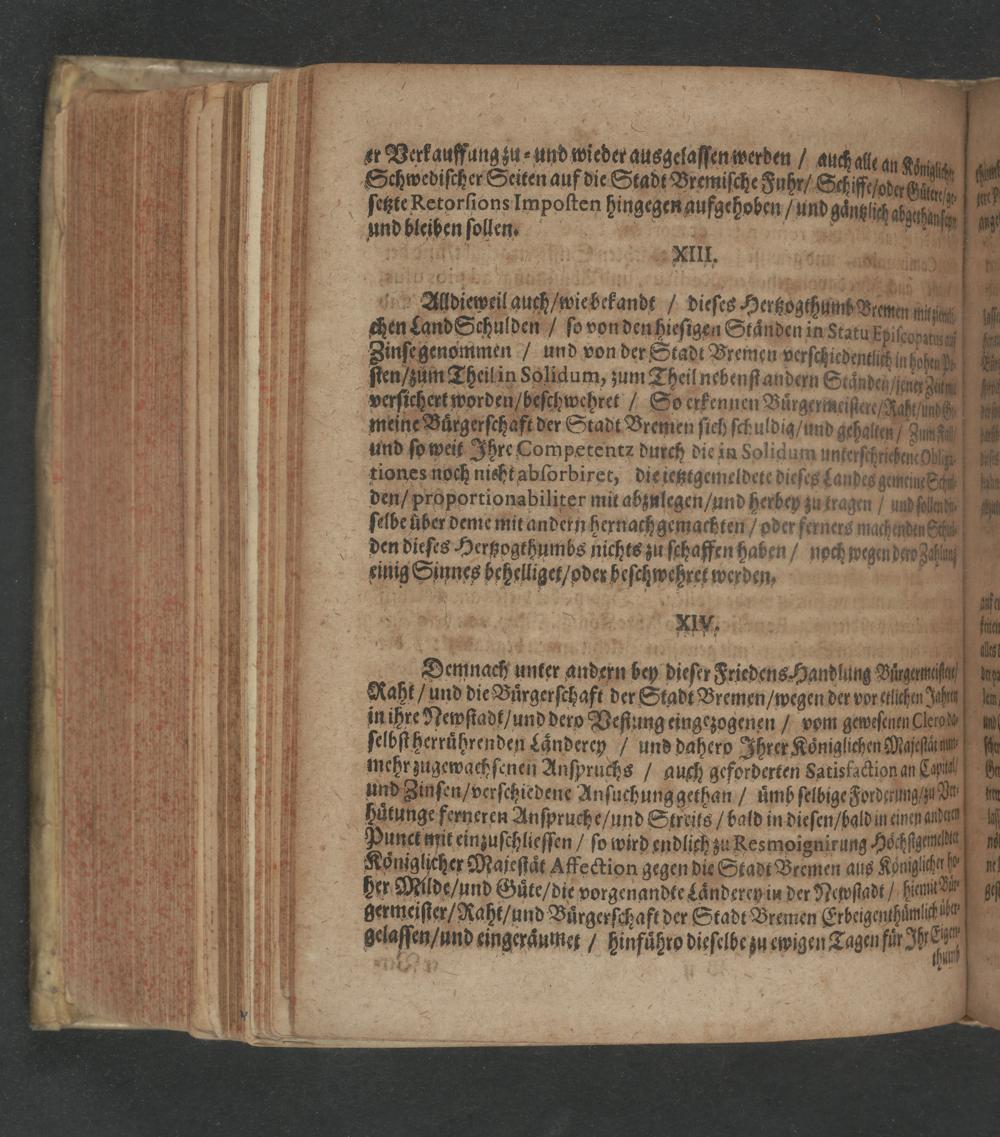 er Verkauffung zu- und wieder ausgelassen werden / auch alle an Königlicher
Schwedischer Seiten auf die Stadt Bremische Fuhr/ Schiffe/oder Gütere/ge-
setzte Retorsions Imposten hingegen aufgehoben / und gäntzlich abgethan seyn
und bleiben sollen.
XIII.
Alldieweil auch/wie bekandt / dieses Hertzogthumb Bremen mit ziemli-
chen Land Schulden / so von den hiesigen Ständen in Statu Episcopatus auf
Zinse genommen / und von der Stadt Bremen verschiedentlich in hohen Po-
sten/zum Theil in Solidum, zum Theil nebenst andern Ständen/jener Zeit mit
versichert worden/beschwehret / So erkennen Bürgermeistere/Raht/und Ge-
meine Bürgerschaft der Stadt Bremen sich schuldig/und gehalten / Zum Fall/
und so weit Ihre Competentz durch die in Solidum unterschriebene Obliga-
tiones noch nicht absorbiret, die ietztgemeldete dieses Landes gemeine Schul-
den/ proportionabiliter mit abzulegen/und herbey zu tragen / und sollen die-
selbe über deme mit andern hernach gemachten / oder ferners machenden Schul-
den dieses Hertzogthumbs nichts zu schaffen haben / noch wegen dero Zahlung
einig Sinnes behelliget/oder beschwehret werden.
XIV.
Demnach unter andern bey dieser Friedens-Handlung Bürgermeistere/
Raht / und die Bürgerschaft der Stadt Bremen/wegen der vor etlichen Jahren
in ihre Newstadt/und dero Vestung eingezogenen / vom gewesenen Clero da-
selbst herrührenden Länderey / und dahero Ihrer Königlichen Majestät nun-
mehr zugewachsenen Anspruchs / auch geforderten Satisfaction an Capital/
und Zinsen/verschiedene Ansuchung gethan / ümb selbige Forderung/zu Ver-
hütunge ferneren Anspruche/und Streits / bald in diesen/bald in einen anderen
Punct mit einzuschliessen / so wird endlich zu Resmoignirung Höchstgemeldter
Königlicher Majestät Affection gegen die Stadt Bremen aus Königlicher ho-
her Milde/und Güte/die vorgenandte Länderey in der Newstadt / hiemit Bür-
germeister/Raht/und Bürgerschaft der Stadt Bremen Erbeigenthümlich über-
gelassen/und eingeräumet / hinführo dieselbe zu ewigen Tagen für Ihr Eigen-
thumb